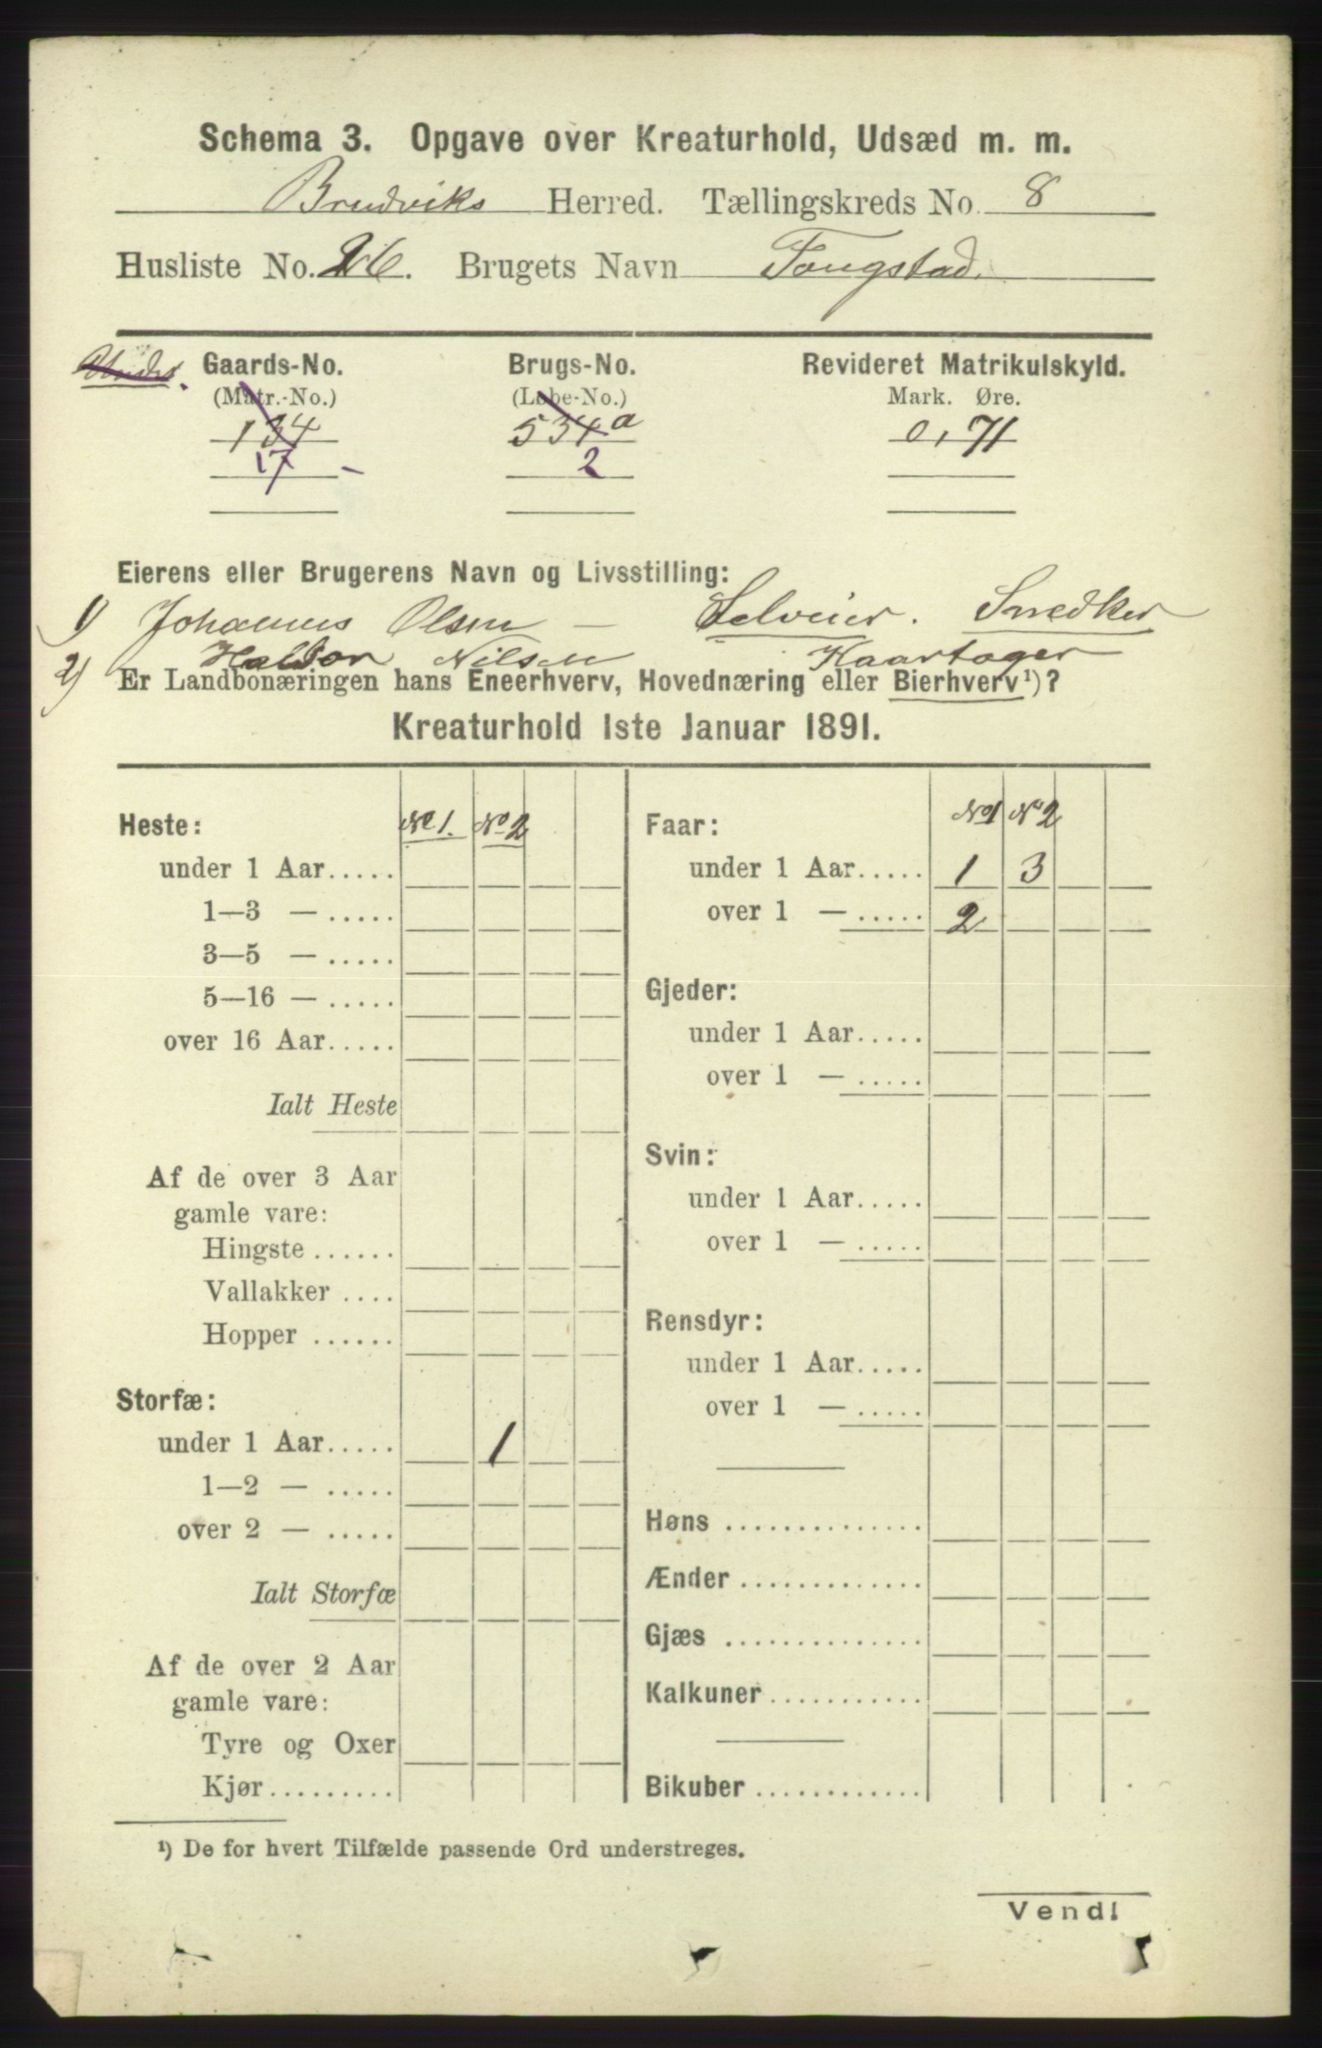 Schema 3. Opgave over Kreaturhold, Udsæd m. m.
Bruviks Herred. Tællingskreds No. 8
Husliste No. 26. Brugets Navn Tougstad.
Gaards-No. Brugs-No. Revideret Matrikulskyld.
(Matr.-No.) (Løbe-No.) Mark. Øre.
134 534a 0,71
17 - 2
Eierens eller Brugerens Navn og Livsstilling:
1) Johannes Olsen – Selveier. Snedker
2) Haldor Nilsen Kaartager
Er Landbonæringen hans Eneerhverv, Hovednæring eller Bierhverv¹)?
Kreaturhold 1ste Januar 1891.
Heste: No 1. No 2
under 1 Aar.....
1—3 — .....
3—5 — .....
5—16 — .....
over 16 Aar.....
Ialt Heste
Af de over 3 Aar
gamle vare:
Hingste ......
Vallakker ....
Hopper ......
Storfæ:
under 1 Aar..... 1
1—2 — .....
over 2 — .....
Ialt Storfæ
Af de over 2 Aar
gamle vare:
Tyre og Oxer
Kjør.........
Faar: No 1 No 2
under 1 Aar..... 1 3
over 1 — ..... 2
Gjeder:
under 1 Aar.....
over 1 — .....
Svin:
under 1 Aar.....
over 1 — .....
Rensdyr:
under 1 Aar.....
over 1 — .....
Høns ..............
Ænder .............
Gjæs ..............
Kalkuner...........
Bikuber ............
¹) De for hvert Tilfælde passende Ord understreges.
Vend!